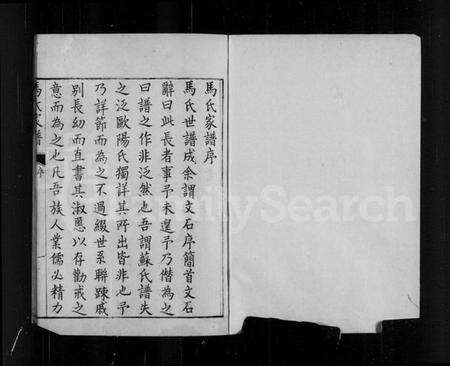 馬氏家譜序
馬氏世譜成余謂文石序簡首文石
辭曰此長者事予未遑予乃僭為之
曰譜之作非泛然也吾謂蘇氏譜失
之泛歐陽氏獨詳其所出皆非也予
乃詳節而為之不過綴世系聯踈戚
別長幼而直書其淑慝以存勸戒之
意而為之也凡吾族人業儒必精力
馬氏家譜 序 一
FamilySearch